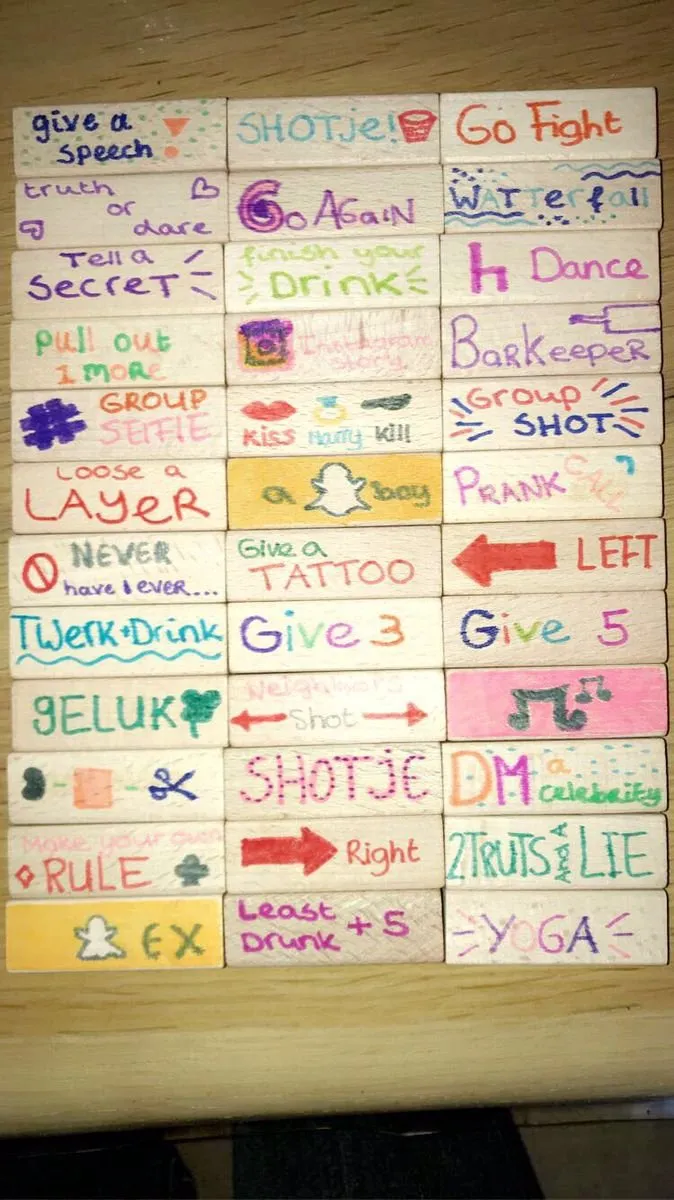 give a
speech
SHOTje!
Go Fight
truth
or
dare
Go AGaiN
WATTerfall
Tell a
SecreT
finish your
Drink
Dance
Pull out
1 more
Instagram
Story
BarKeepeR
GROUP
SELFIE
Kiss Marry Kill
Group
SHOT
Loose a
LAYeR
a boy
PRANK CALL
NEVER
have I ever...
Give a
TATTOO
LEFT
Twerk+Drink
Give 3
Give 5
gELUK
Neighbors
Shot
SHOTJE
DM a
celebrity
Make your own
RULE
Right
2TRUTS AND A LIE
EX
Least
Drunk + 5
YOGA